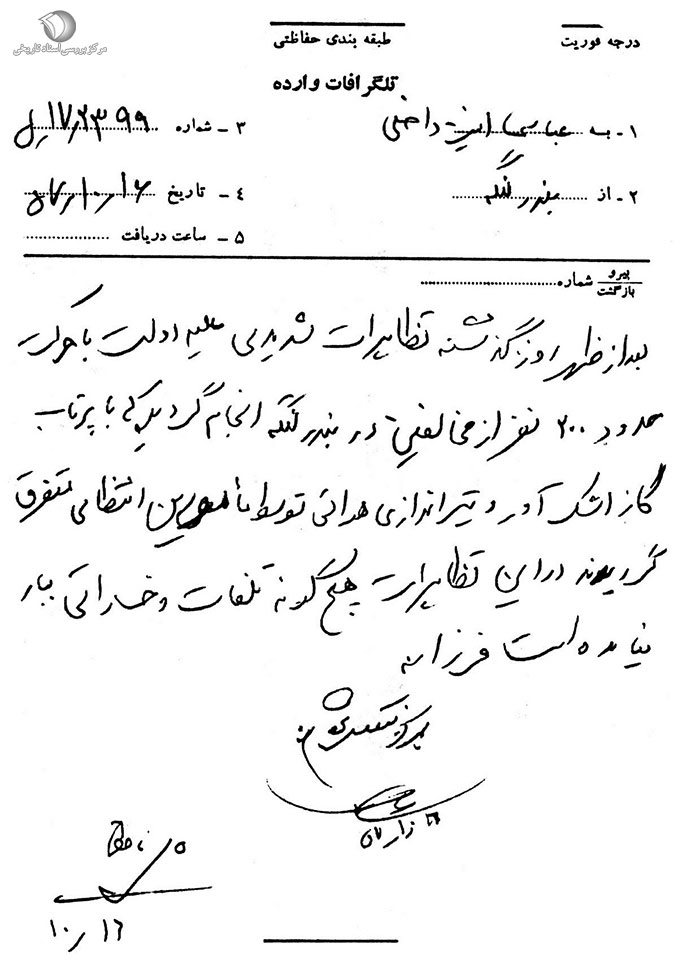 مرکز بررسی اسناد تاریخی
درجه فوریت
طبقه بندی حفاظتی
تلگرافات وارده
۱ - به عباسی امنیت داخلی
۳ - شماره ۱۷٫۲۳۹۹
۲ - از بندر لنگه
۴ - تاریخ ۵۷٫۱۰٫۱۶
۵ - ساعت دریافت
پیرو
بازگشت
شماره
بعد از ظهر روز گذشته تظاهرات شدیدی علیه دولت با حرکت
حدود ۲۰۰ نفر از مخالفین در بندر لنگه انجام گردید که با پرتاب
گاز اشک آور و تیراندازی هوائی توسط مأمورین انتظامی متفرق
گردیدند در این تظاهرات هیچگونه تلفات و خساراتی ببار
نیامده است فرزانه
۱۰٫۱۶